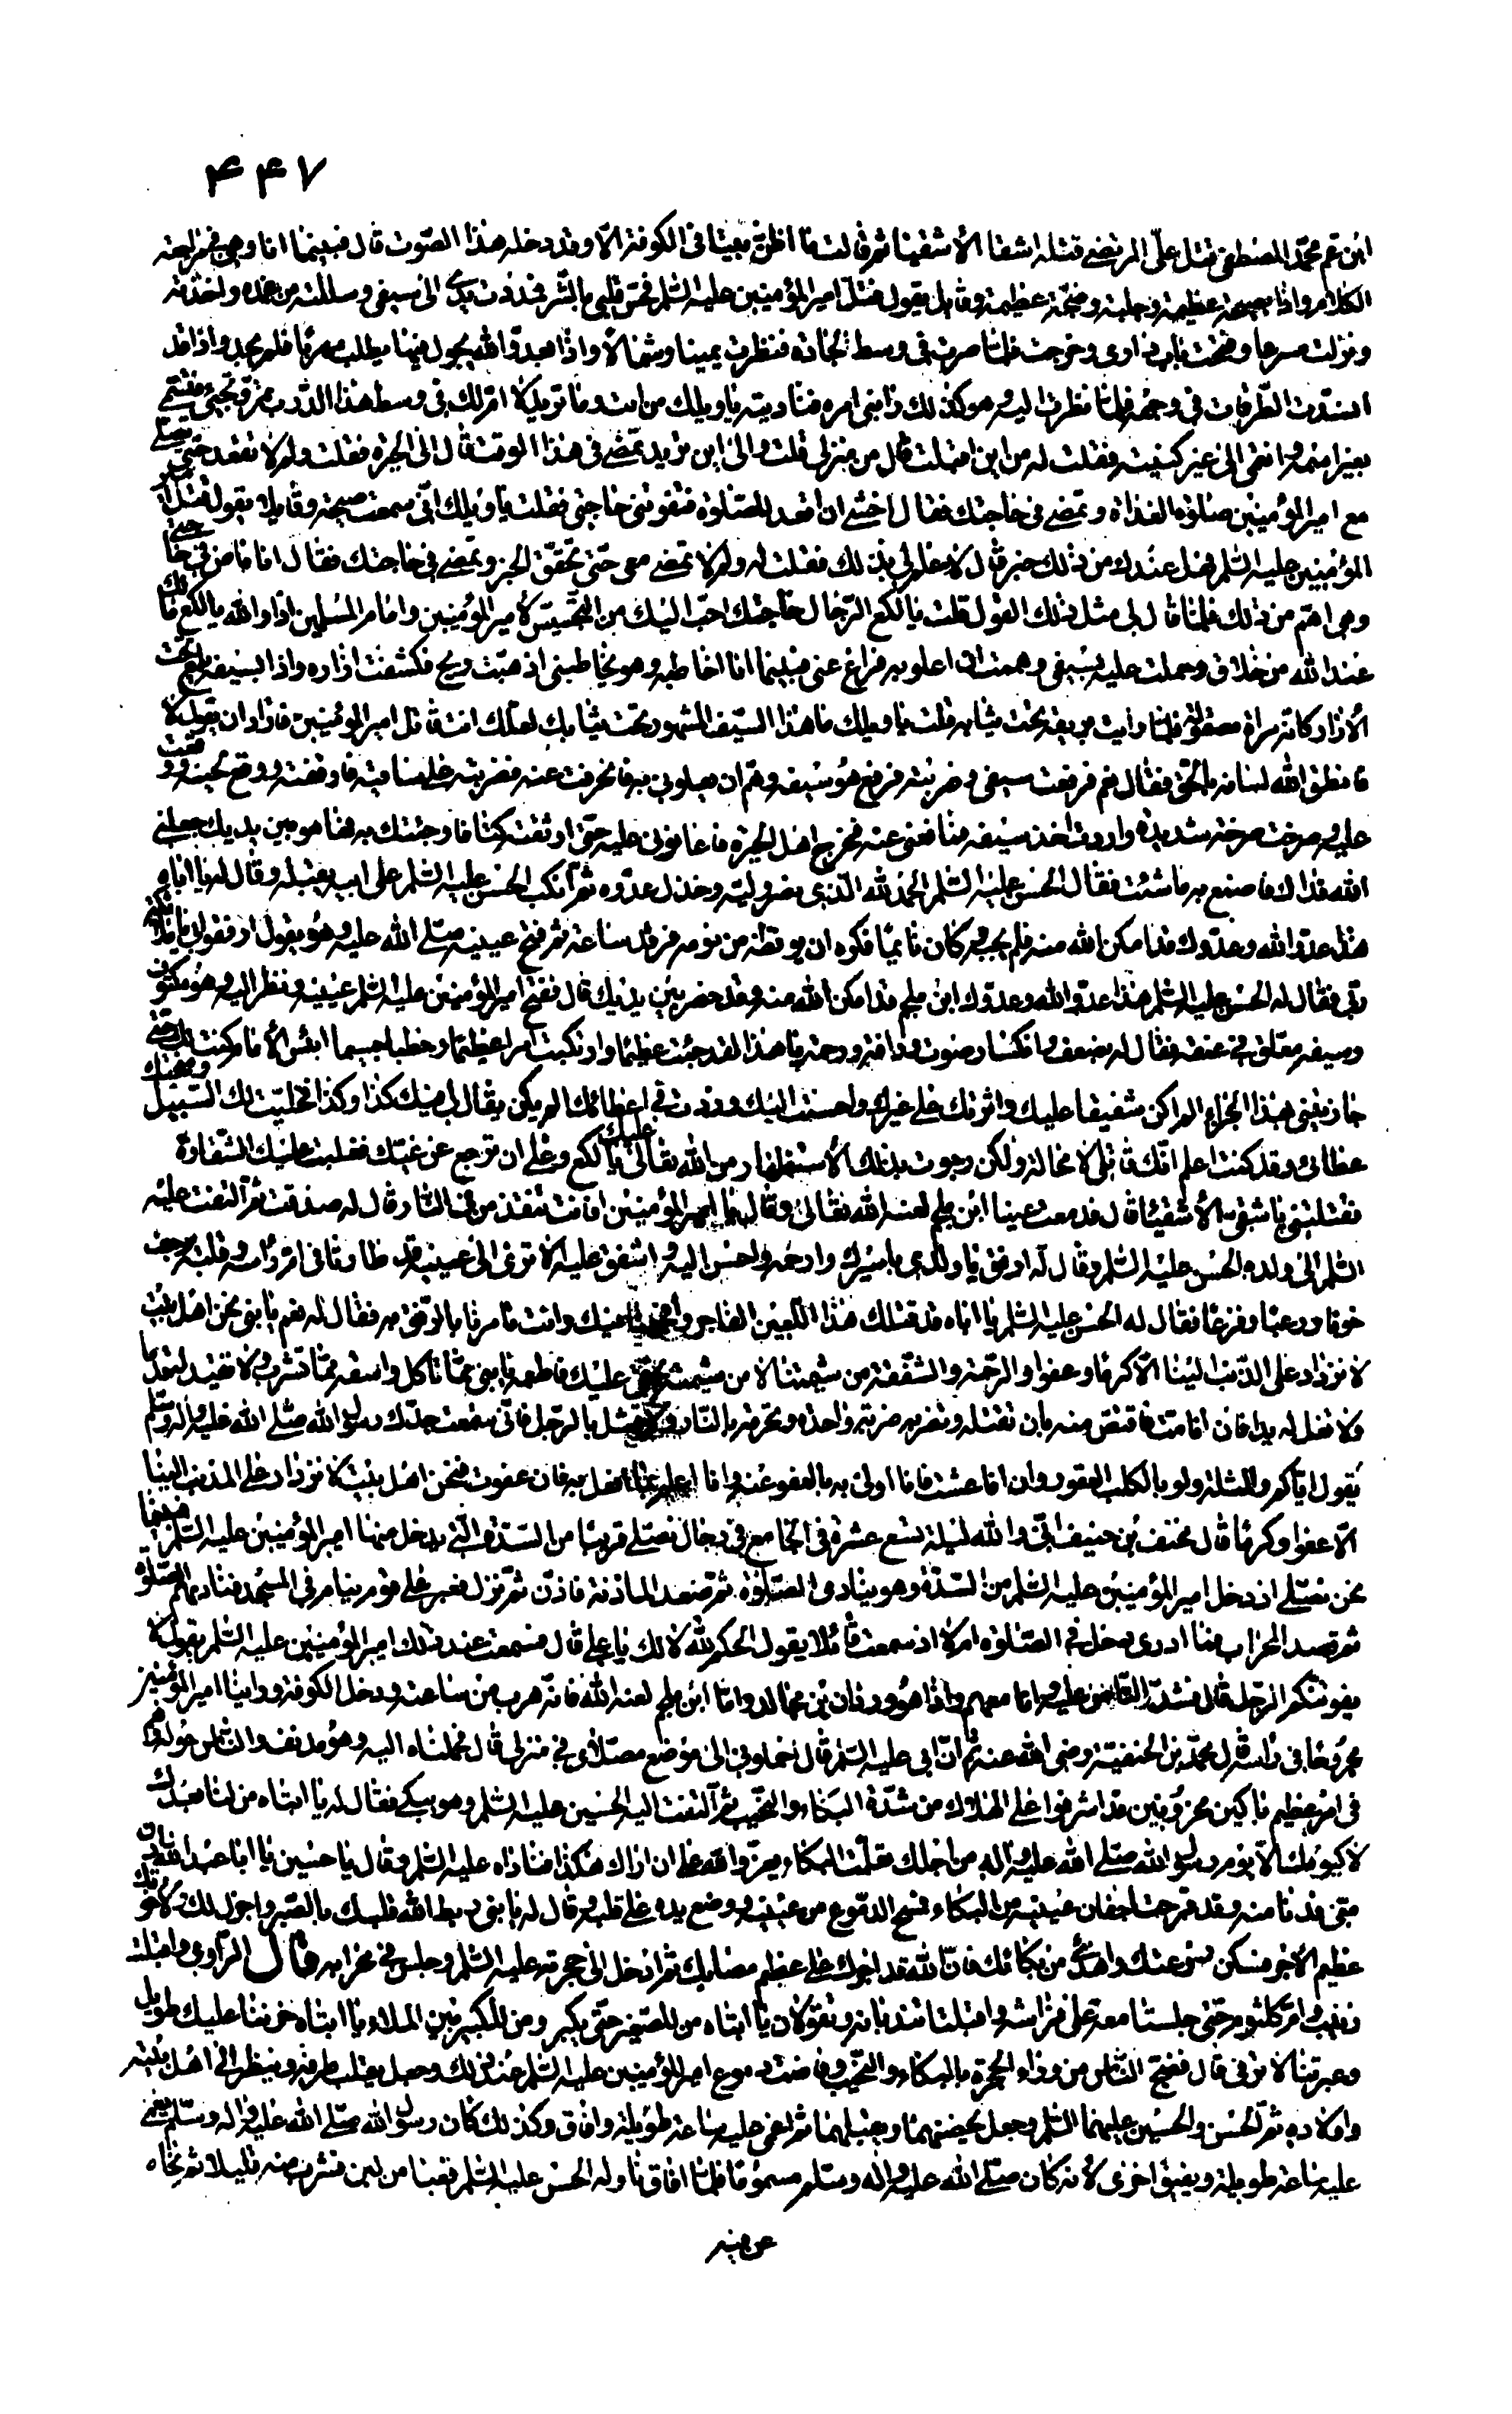 ۴۴۷
ابن عم محمد المصطفى قتل على المرتضى قتله اشقى الأشقياء ثم قالت ما اظن بيتا فى الكوفة الا وقد دخله هذا الصوت قال فبينما انا وهى فى مراجعة
الكلام واذا بصيحة عظيمة وجلبة وضجة عظيمة وقايل يقول قتل امير المؤمنين عليه السلم فحس قلبى بالشر فمددت يدى الى سيفى وسللته من غمده واخذته
ونزلت مسرعا وفتحت باب دارى وخرجت فلما صرت فى وسط الجادة فنظرت يمينا وشمالا واذا بعدو الله يجول فيها يطلب مهربا فلم يجد واذا قد
انسدت الطرقات فى وجهه فلما نظرت اليه وهو كذلك رابنى امره فناديته يا ويلك من انت وما تريد لا ام لك فى وسط هذا الدرب تمر وتجىء فتسمى
بغير اسمه وانتمى الى غير كنيته فقلت له من اين اقبلت قال من منزلى قلت والى اين تريد تمضى فى هذا الوقت قال الى الحيرة فقلت ولم لا تقعد حتى تصلى
مع امير المؤمنين صلوة الغداة وتمضى فى حاجتك فقال اخشى ان اقعد للصلوة فتفوتنى حاجتى فقلت يا ويلك انى سمعت صيحة وقايلا يقول قتل امير
المؤمنين عليه السلم فهل عندك من ذلك خبر قال لا علم لى بذلك فقلت له ولم لا تمضى معى حتى تحقق الخبر وتمضى فى حاجتك فقال انا ماض فى حاجتى
وهى اهم من ذلك فلما قال لى مثل ذلك القول قلت يا لكع الرجال حاجتك احب اليك من التجسس لامير المؤمنين وامام المسلمين اذا والله يا لكع ما لك
عند الله من خلاق وحملت عليه بسيفى وهممت ان اعلو به فراغ عنى فبينما انا اخاطبه وهو يخاطبنى اذ هبت ريح فكشفت ازاره واذا بسيفه يلمع تحت
الأزار كانه مرآة مصقولة فلما رايت بريقه تحت ثيابه قلت يا ويلك ما هذا السيف المشهور تحت ثيابك لعلك انت قاتل امير المؤمنين فاراد ان يقول لا
فانطق الله لسانه بالحق فقال نعم فرفعت سيفى وضربته فرفع هو سيفه وهم ان يعلونى به فانحرفت عنه فضربته على ساقيه فاوقفته ووقع لحينه ووقعت
عليه وصرخت صرخة شديدة واردت اخذ سيفه فمانعنى عنه فخرج اهل الحيرة فاعانونى عليه حتى اوثقته كتافا وجئتك به فها هو بين يديك جعلنى
الله فداك فاصنع به ما شئت فقال الحسن عليه السلم الحمد لله الذى نصر وليه وخذل عدوه ثم انكب الحسن عليه السلم على ابيه يقبله وقال له يا اباه
هذا عدو الله وعدوك قد امكن الله منه فلم يجبه وكان نائما فكره ان يوقظه من نومه فرقد ساعة ثم فتح عينيه صلى الله عليه وهو يقول ارفقوا بى يا ملائكة
ربى فقال له الحسن عليه السلم هذا عدو الله وعدوك ابن ملجم قد امكن الله منه وقد حضر بين يديك قال ففتح امير المؤمنين عليه السلم عينيه ونظر اليه وهو مكتوف
وسيفه معلق فى عنقه فقال له بضعف وانكسار صوت ورافة ورحمة يا هذا لقد جئت عظيما وارتكبت امرا عظيما وخطبا جسيما ابئس الأمام كنت لك حتى
جازيتنى بهذا الجزاء الم اكن شفيقا عليك واثرتك على غيرك واحسنت اليك وزدت فى اعطائك الم يكن يقال لى فيك كذا وكذا فخليت لك السبيل ومنحتك
عطائى وقد كنت اعلم انك قاتلى لا محالة ولكن رجوت بذلك الأستظهار من الله تعالى عليك يا لكع وعلى ان ترجع عن غيك فغلبت عليك الشقاوة
فقتلتنى يا شقى الأشقياء قال فدمعت عينا ابن ملجم لعنه الله تعالى وقال يا امير المؤمنين افانت تنقذ من فى النار قال له صدقت ثم التفت عليه
السلم الى ولده الحسن عليه السلم وقال له ارفق يا ولدى باسيرك وارحمه واحسن اليه واشفق عليه الا ترى الى عينيه قد طارتا فى ام راسه وقلبه يرجف
خوفا ورعبا وفزعا فقال له الحسن عليه السلم يا اباه قد قتلك هذا اللعين الفاجر وافجعنا فيك وانت تامرنا بالرفق به فقال له نعم يا بنى نحن اهل بيت
لا نزداد على الذنب الينا الا كرما وعفوا والرحمة والشفقة من شيمتنا لا من شيمته بحقى عليك فاطعمه يا بنى مما تاكل واسقه مما تشرب ولا تقيد له قدما
ولا تغل له يدا فان انا مت فاقتص منه بان تقتله وتضربه ضربة واحدة وتحرقه بالنار ولا تمثل بالرجل فانى سمعت جدك رسول الله صلى الله عليه واله وسلم
يقول اياكم والمثلة ولو بالكلب العقور وان انا عشت فانا اولى به بالعفو عنه وانا اعلم بما افعل به فان عفوت فنحن اهل بيت لا نزداد على المذنب الينا
الا عفوا وكرما قال مخنف بن حنيف انى والله ليلة تسع عشرة فى الجامع فى رجال نصلى قريبا من السدة التى يدخل منها امير المؤمنين عليه السلم فبينما
نحن نصلى اذ دخل امير المؤمنين عليه السلم من السدة وهو ينادى الصلوة ثم صعد المأذنة فاذن ثم نزل فعبر على قوم نيام فى المسجد فناديهم الصلوة
ثم قصد المحراب فما ادرى دخل فى الصلوة ام لا اذ سمعت قائلا يقول الحكم لله لا لك يا على قال فسمعت عند ذلك امير المؤمنين عليه السلم يقول لا
يفوتنكم الرجل قال فشد الناس عليه وانا معهم واذا هو وردان بن مجالد واما ابن ملجم لعنه الله فانه هرب من ساعته ودخل الكوفة وراينا امير المؤمنين
مجروحا فى راسه قال محمد بن الحنفية رضى الله عنه ثم ان ابى عليه السلم قال احملونى الى موضع مصلاى فى منزلى قال فحملناه اليه وهو مدنف والناس حوله وهم
فى امر عظيم باكين محزونين قد اشرفوا على الهلاك من شدة البكاء والنحيب ثم التفت اليه الحسين عليه السلم وهو يبكى فقال له يا ابتاه من لنا بعدك
لا كيومك الا يوم رسول الله صلى الله عليه واله من اجلك تعلمت البكاء يعز والله على ان اراك هكذا فناداه عليه السلم وقال يا حسين يا ابا عبد الله
منى فدنا منه وقد قرحت اجفان عينيه من البكاء فمسح الدموع من عينيه ووضع يده على قلبه وقال له يا بنى ربط الله قلبك بالصبر واجزل لك ولاخوتك
عظيم الأجر فسكن روعتك واهدأ من بكائك فان الله قد اجرك على عظيم مصابك ثم ادخل الى حجرته عليه السلم وجلس فى محرابه قال الراوى واقبلت
زينب وام كلثوم حتى جلستا معه على فراشه واقبلتا تندبانه وتقولان يا ابتاه من للصغير حتى يكبر ومن للكبير بين الملاء يا ابتاه حزننا عليك طويل
وعبرتنا لا ترقى قال فضج الناس من وراء الحجرة بالبكاء والنحيب وفاضت دموع امير المؤمنين عليه السلم عند ذلك وجعل يقلب طرفه وينظر الى اهل بيته
واولاده ثم الحسن والحسين عليهما السلم وجعل يحضنهما ويقبلهما ثم اغمى عليه ساعة طويلة وافاق وكذلك كان رسول الله صلى الله عليه واله وسلم يغمى
عليه ساعة طويلة ويفيق اخرى لأنه كان صلى الله عليه واله وسلم مسموما فلما افاق ناوله الحسن عليه السلم قعبا من لبن فشرب منه قليلا ثم نحاه
عن فيه